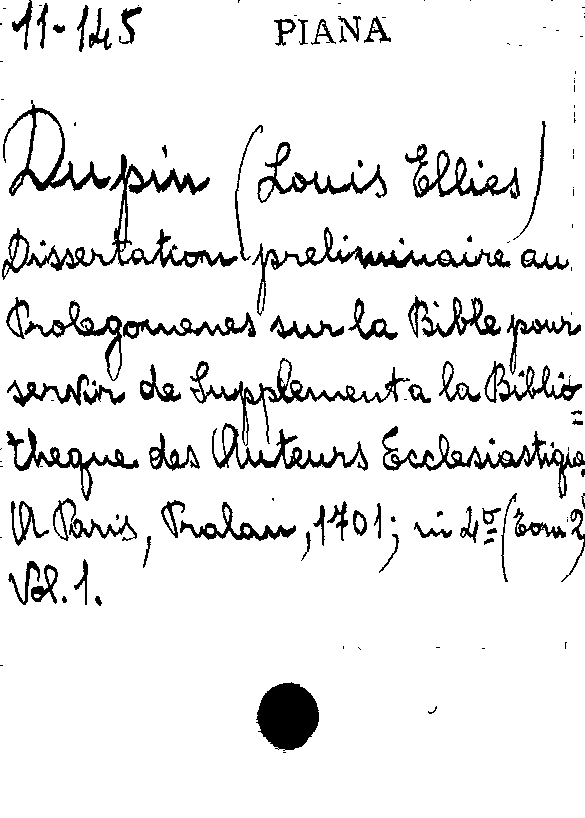 11-145 PIANA
Dupin (Louis Ellies)
Dissertation preliminaire au
Prolegomenes sur la Bible pour
servir de Supplement a la Biblio=
theque des Auteurs Ecclesiastique
A Paris, Pralain, 1701; in 4º (Tom 2)
Vol. 1.